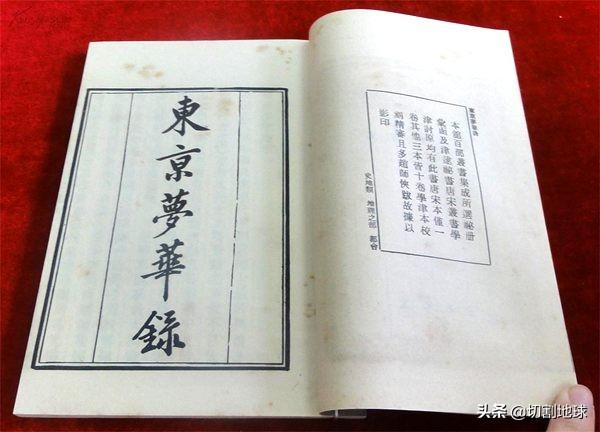 東京夢華錄
本館百部叢書集成所選祕冊
彙函及津逮祕書唐宋叢書學
津討原均有此書唐宋本僅一
卷其他三本皆十卷學津本校
精審且多趙師俠跋故據以
影印
史地類 地理之部 都會
東京夢華錄
头条 @切割地球